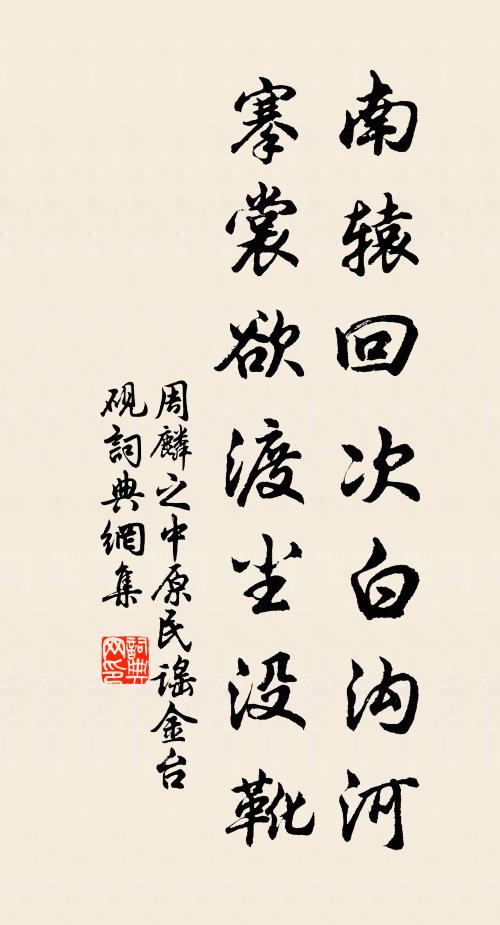 南辕回次白沟河
搴裳欲渡尘没靴
周麟之中原民謠金台
砚詞典網集
詞典网印